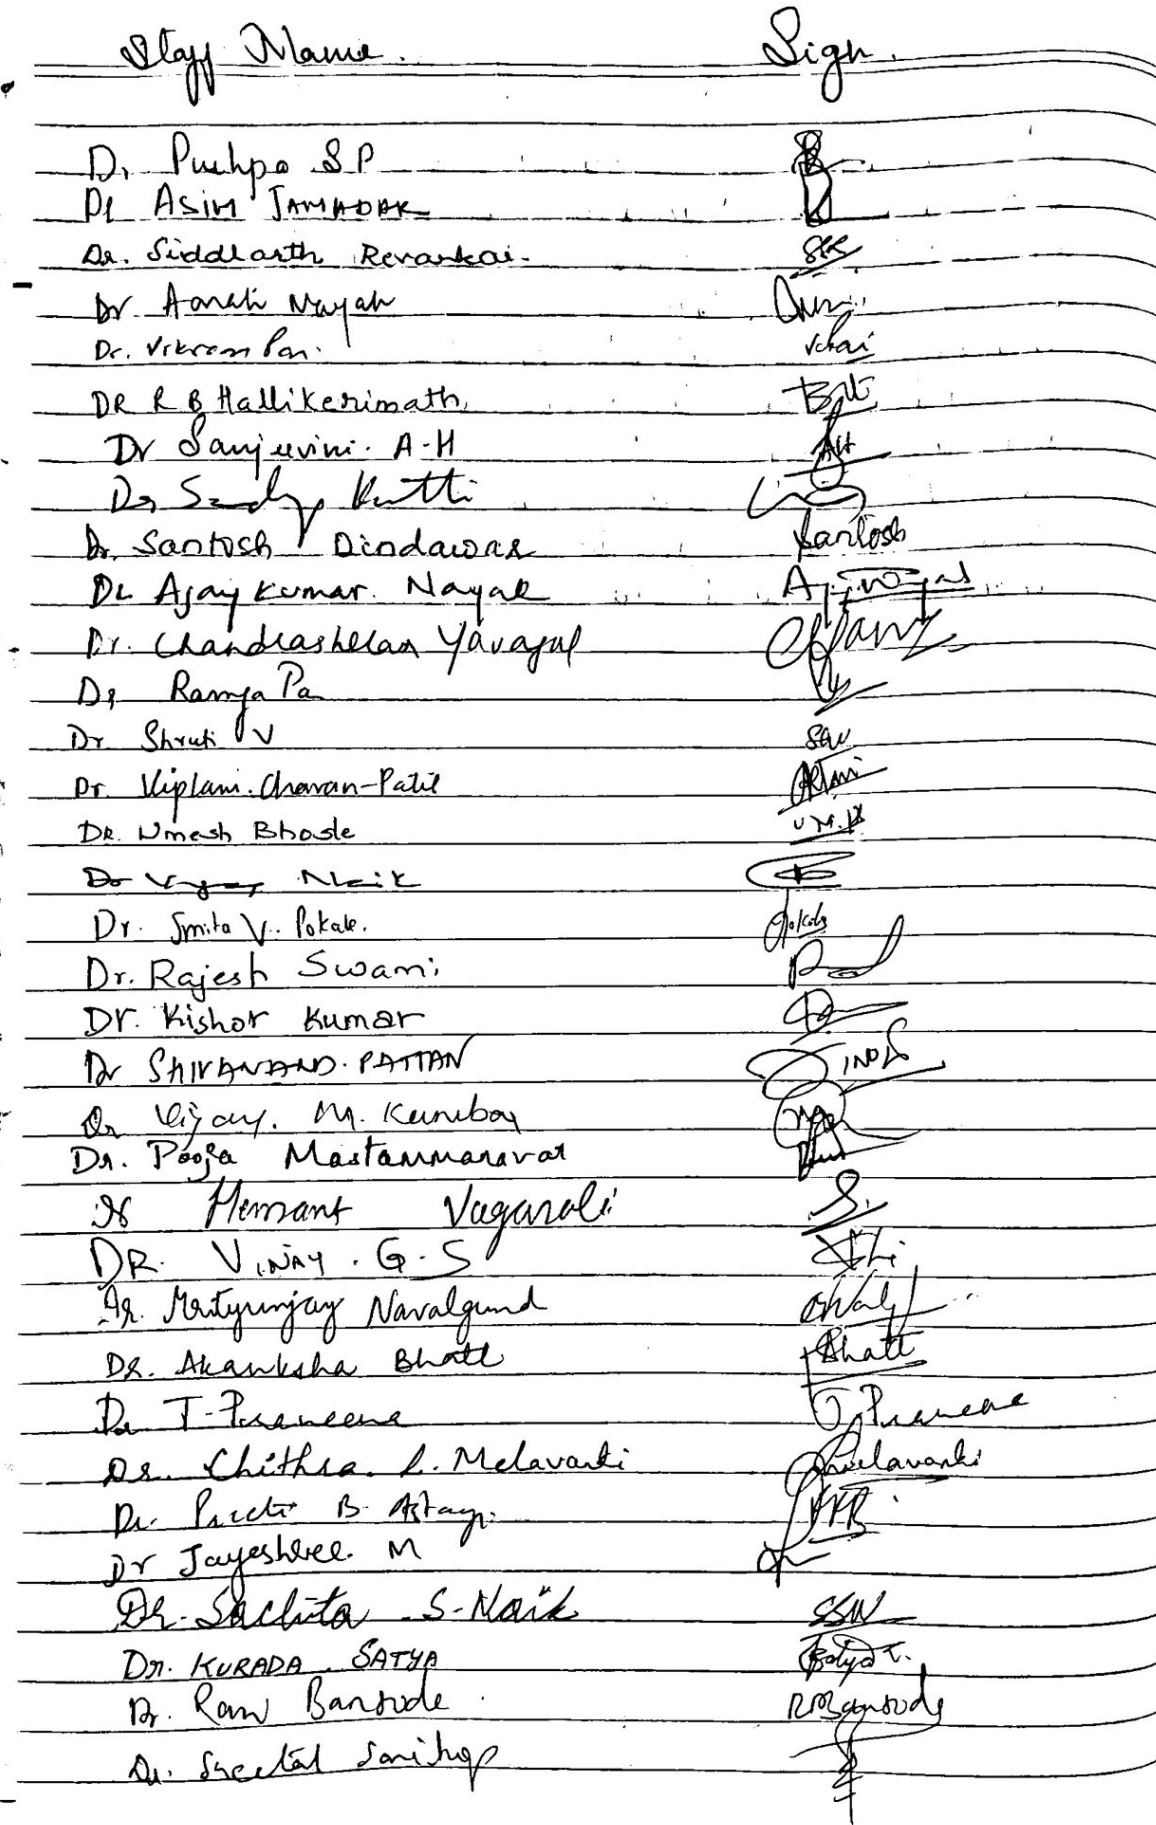 Staff Name. Sign.
Dr Pushpa S.P
Dr ASIM JAMADAR
Dr. Siddharth Revankar. SSR
Dr Aarati Nayak
Dr. Vikram Pai. VPai
DR R B Hallikerimath
Dr Sanjeevini. A-H AH
Dr Sandip Kutti
Dr. Santosh Dindawar Santosh
Dr Ajay Kumar. Nayak
Dr. Chandrashekar Yavagal
Dr Ramya Pai
Dr Shruti V
Dr. Viplavi. Chavan-Patil
DR. Umesh Bhosle
Dr Vijay Naik
Dr. Smita V. Pokale. Pokale
Dr. Rajesh Swami
Dr. Kishor Kumar
Dr SHIVANAND. PATTAN
Dr Vijay. M. Kumbar
Dr. Pooja Mastammanavar
Dr Hemant Vagarali
DR. VINAY. G.S
Dr. Mrityunjay Navalgund
Dr. Akanksha Bhatt Bhatt
Dr T-Praneena T Praneena
Dr. Chithra. L. Melavanki Melavanki
Dr. Preeti B.
Dr Jayeshree. M
Dr. Sachita S-Naik SSN
Dr. KURADA SATYA Satya
Dr. Ram Bansode RMBansode
Dr. Sheetal